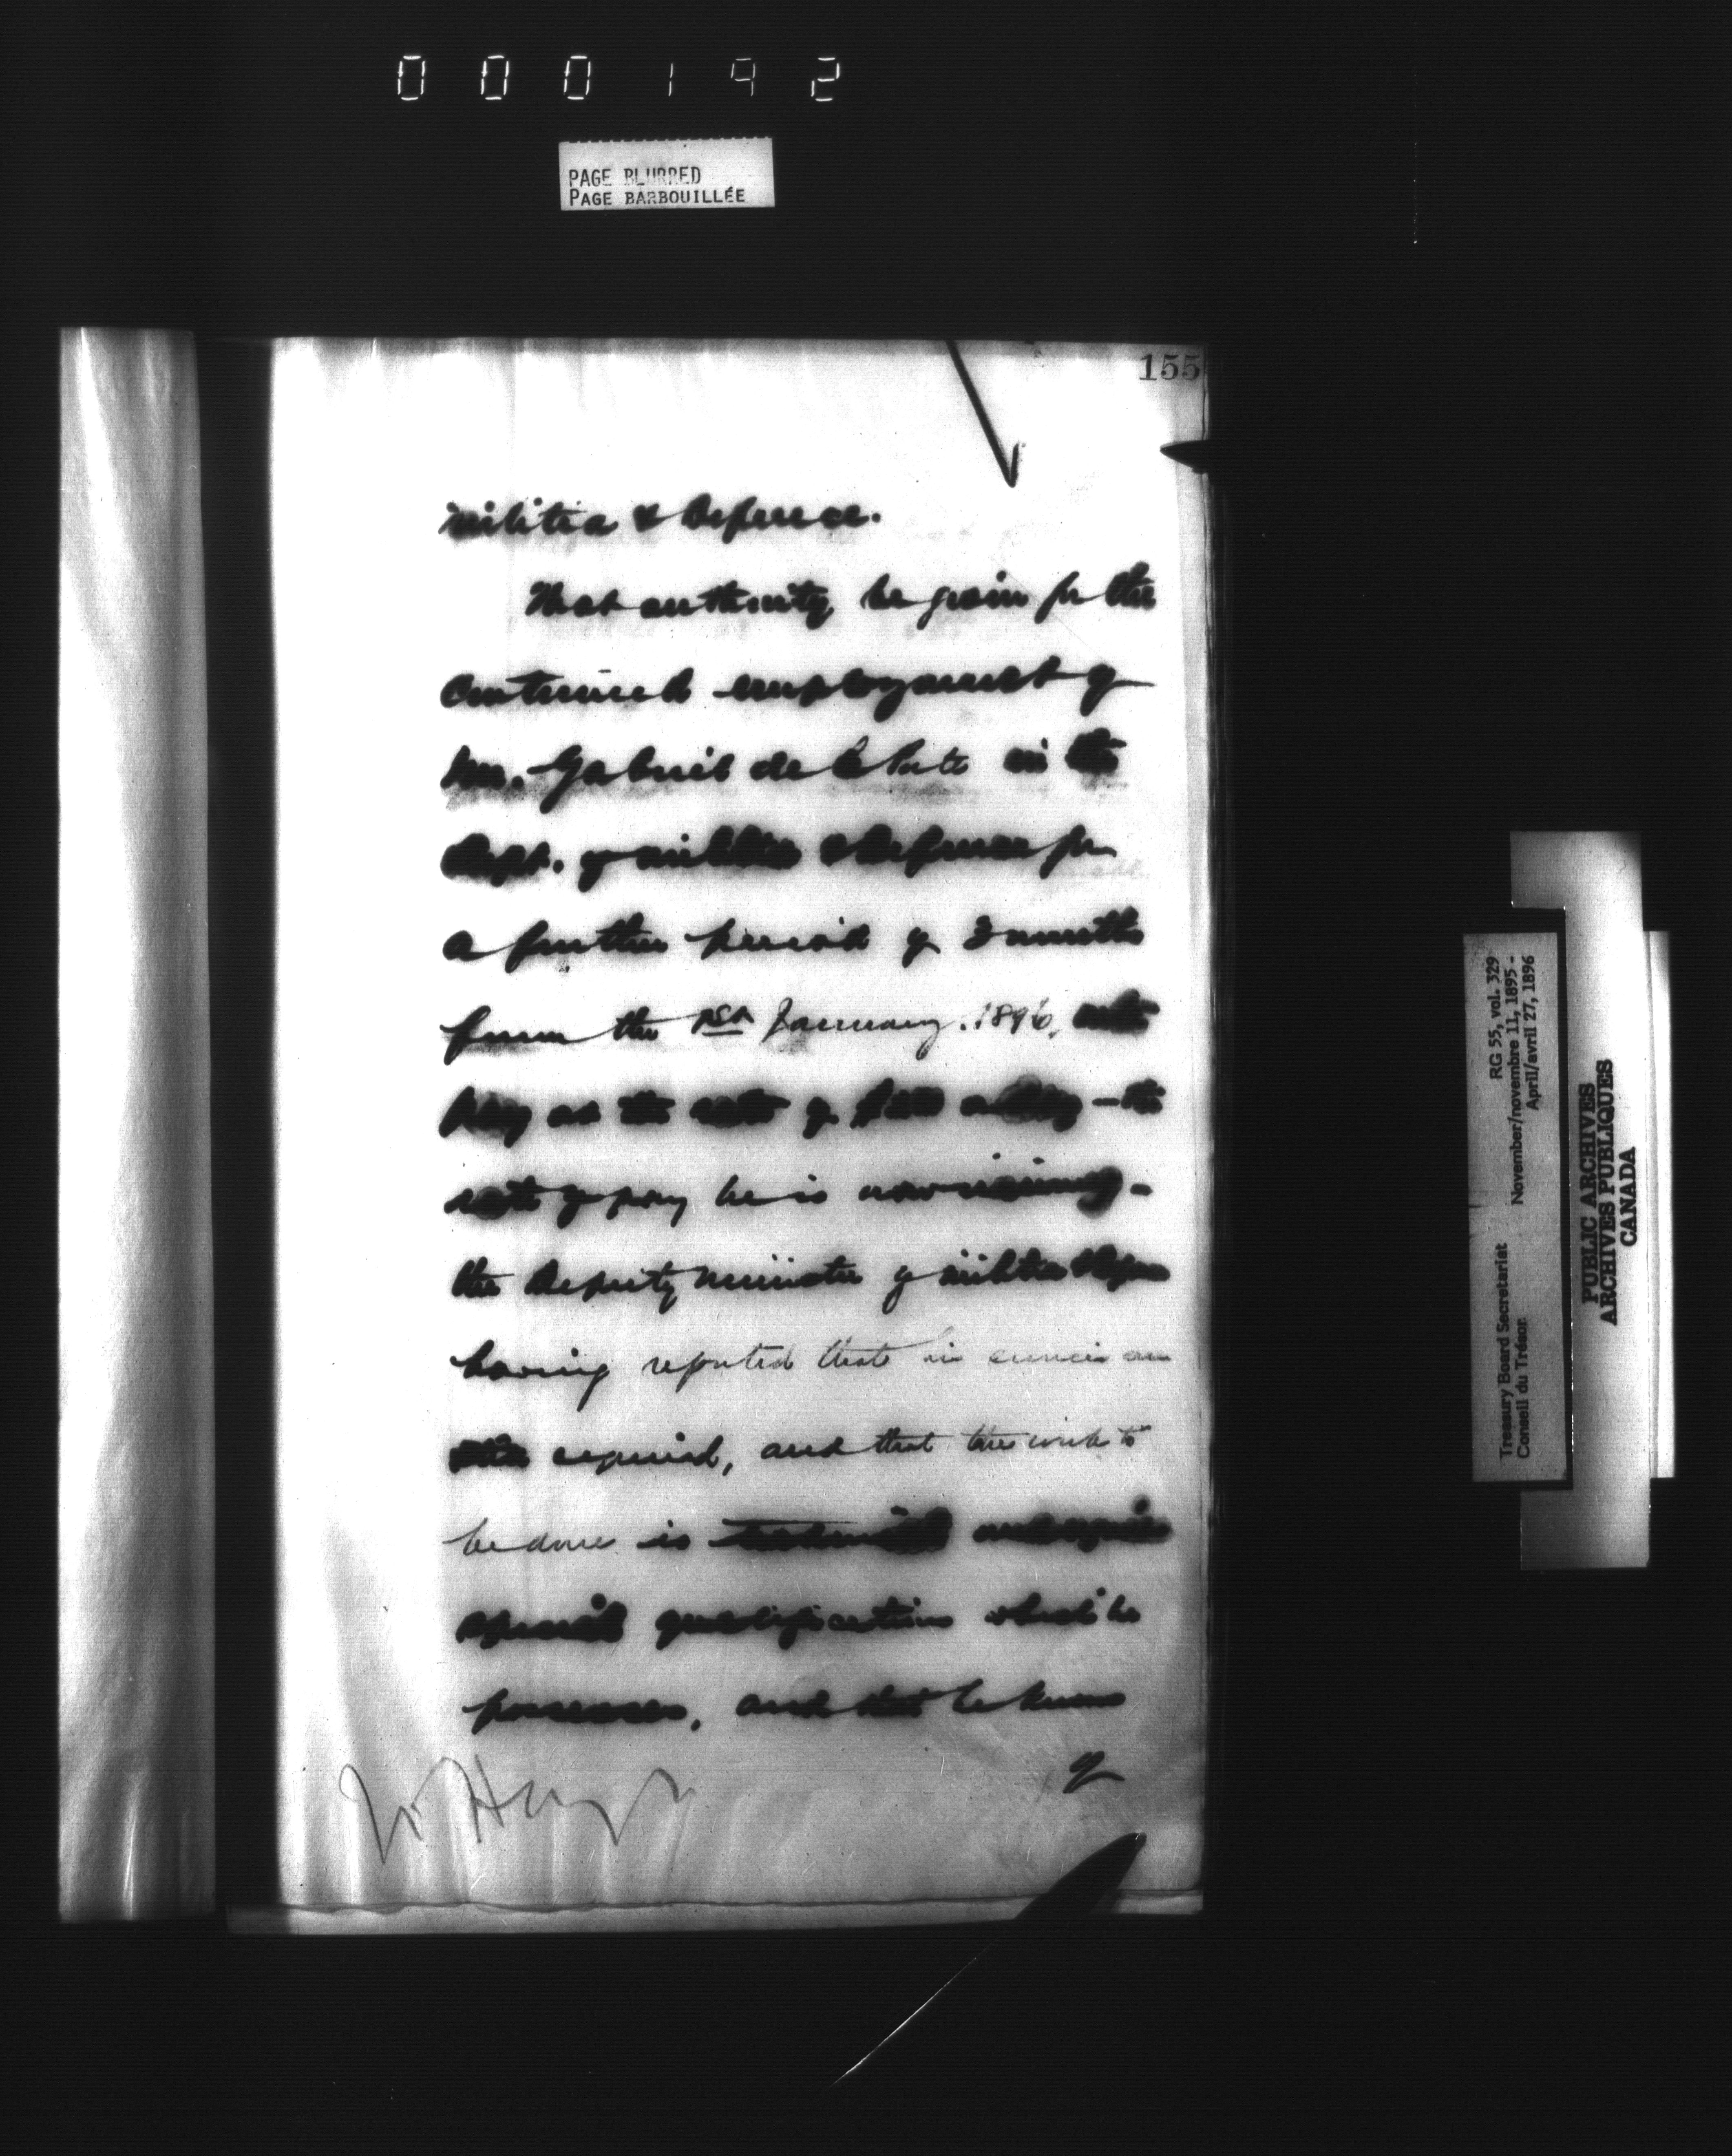 000192
PAGE BLURRED
PAGE BARBOUILLÉE
155
Militia & Defence.
That authority be given for the
continued employment of
Mr. Gabriel de in the
Dept. of Militia & Defence for
a further period of 3 months
from the 1st January, 1896, with
pay at the rate of — the
rate of pay he is now receiving -
the Deputy Minister of Militia & Defence
having reported that
required, and that the work to
be done is technical and requires
special qualifications which he
possesses, and that he knows
of
RG 55, vol. 329
November/novembre 11, 1895 -
April/avril 27, 1896
Treasury Board Secretariat
Conseil du Trésor
PUBLIC ARCHIVES
ARCHIVES PUBLIQUES
CANADA